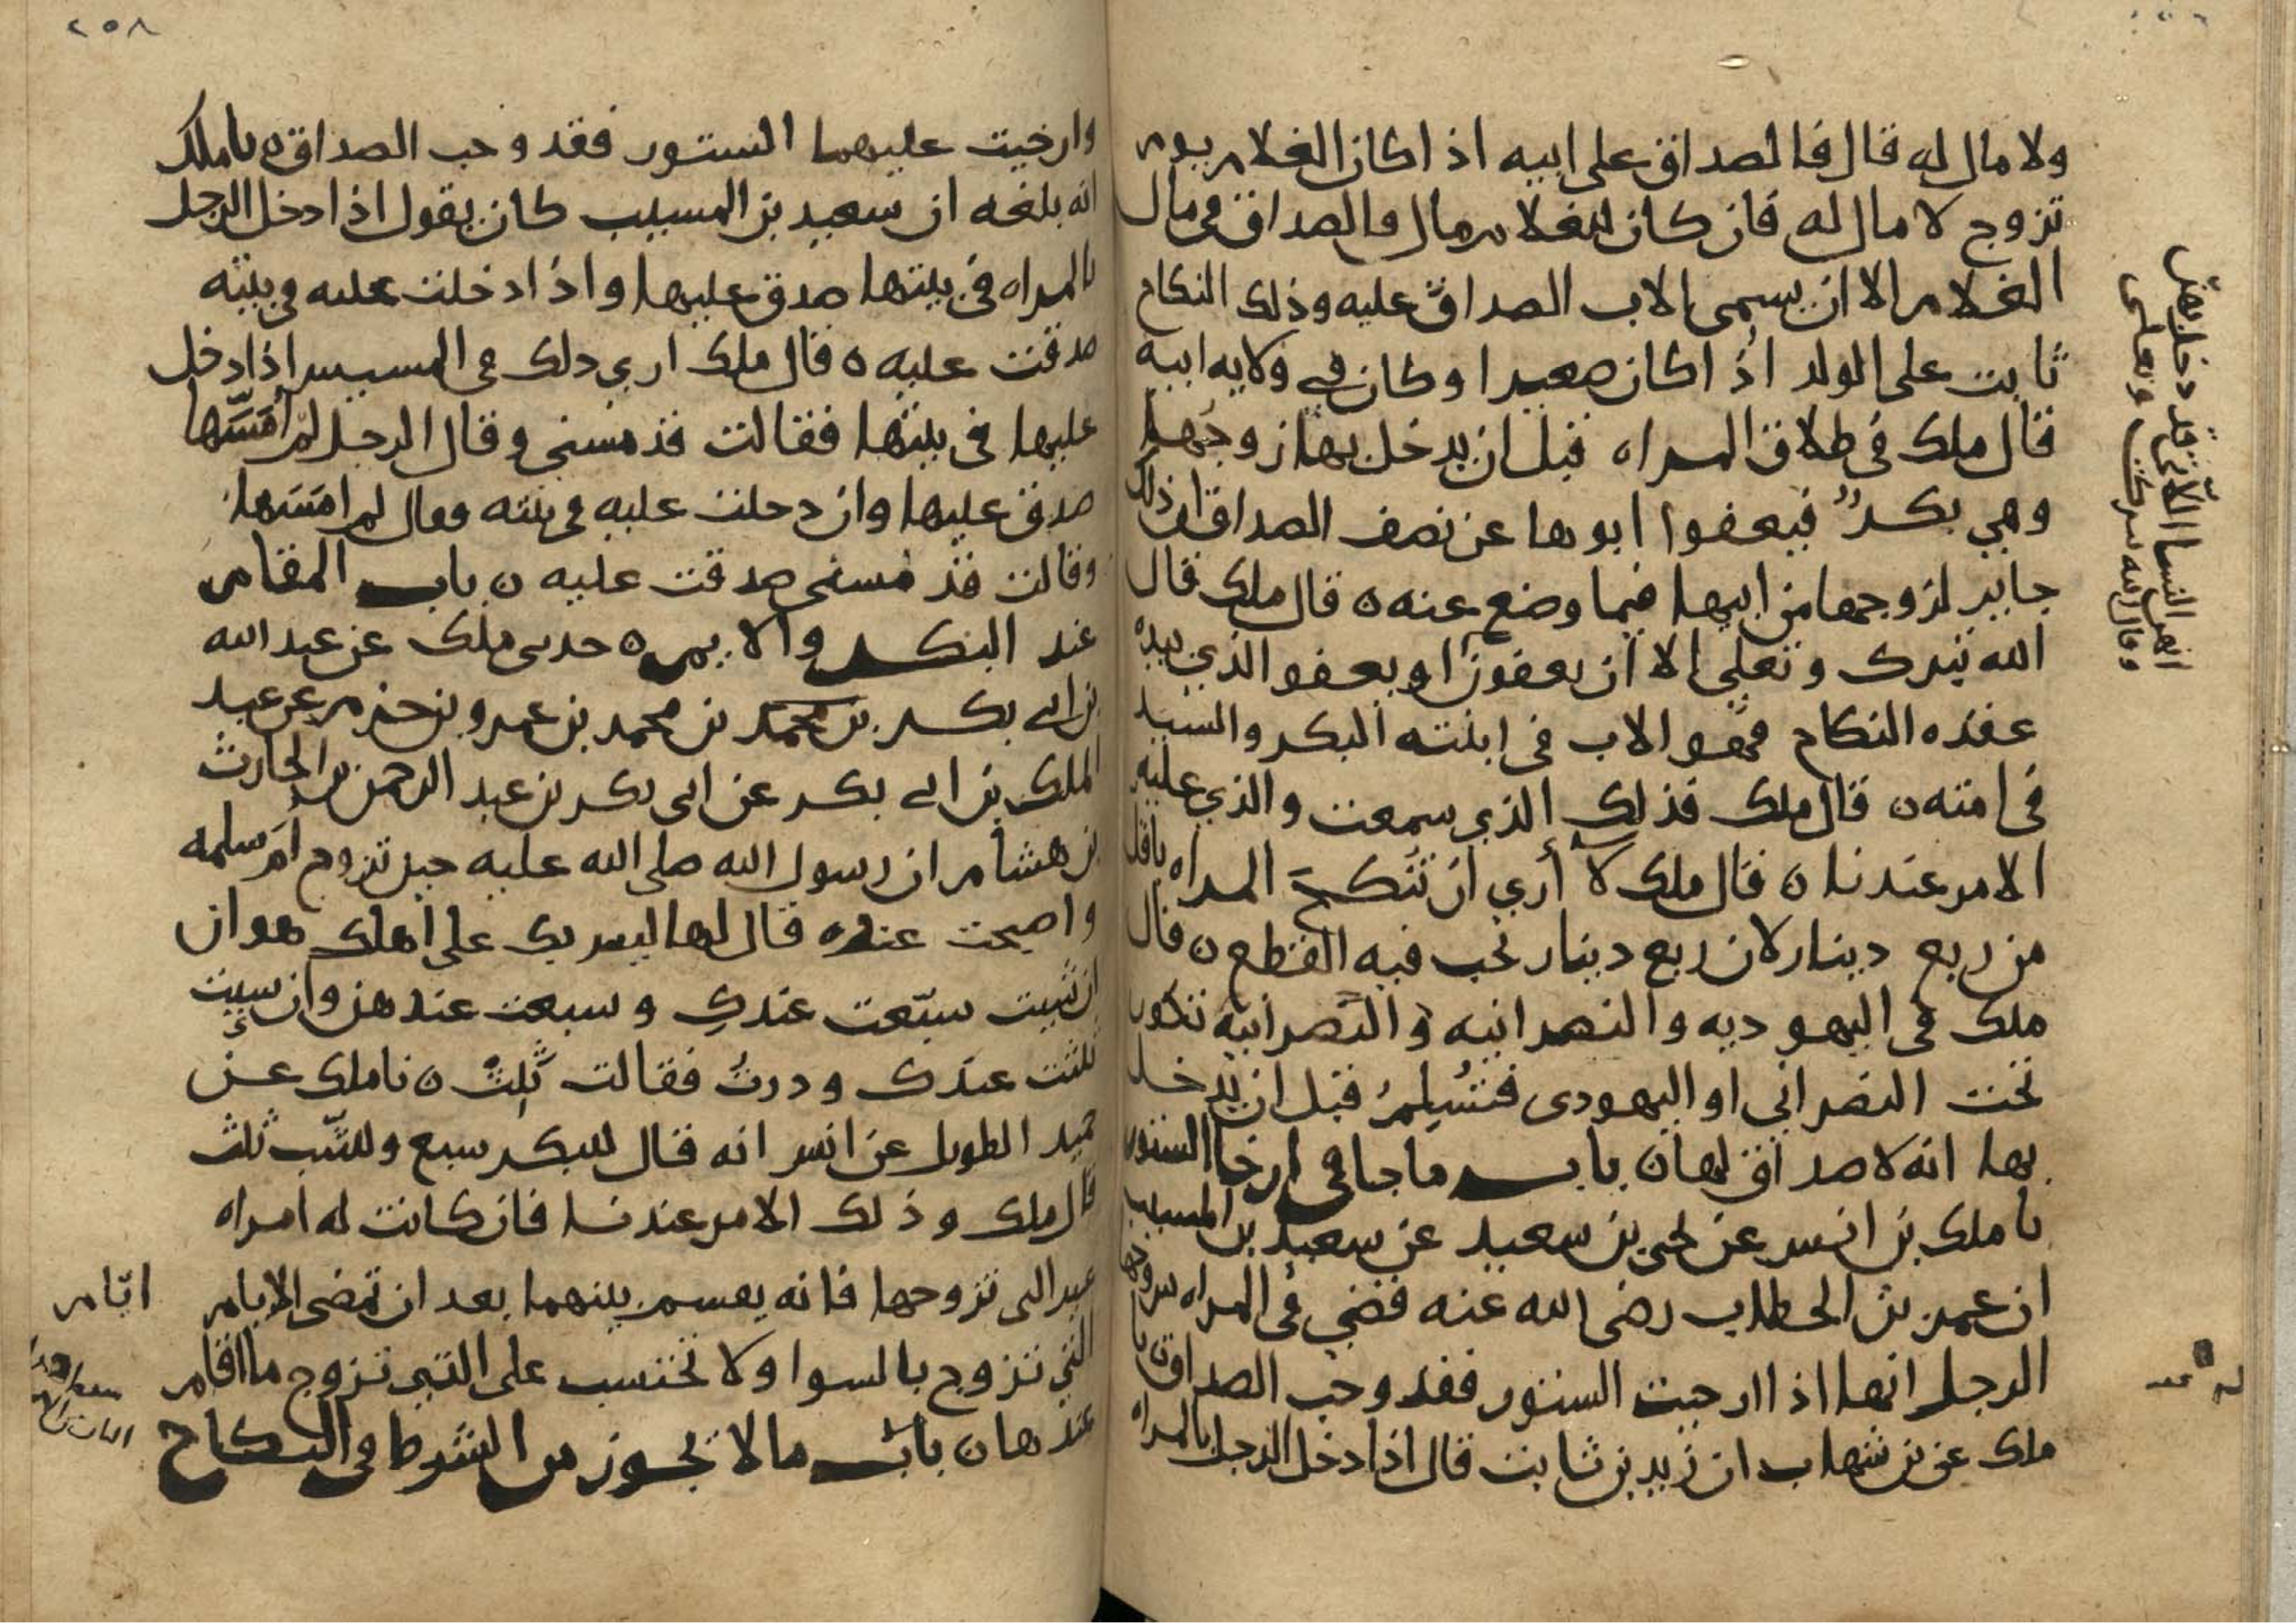 ولا مال له قال فالصداق على ابيه اذا كان الغلام يوم
تزوج لا مال له فان كان للغلام مال فالصداق في مال
الغلام الا ان يسمى الاب الصداق عليه وذلك النكاح
ثابت على الولد اذا كان صغيرا وكان في ولايه ابيه
قال ملك في طلاق المراه قبل ان يدخل بها زوجها
وهي بكر فيعفوا ابوها عن نصف الصداق ان ذلك
جايز لزوجها من ابيها فيما وضع عنه ه قال ملك قال
الله تبرك وتعلى الا ان يعفون او يعفو الذي بيده
عقده النكاح فهو الاب في ابنته البكر والسيد
في امته ه قال ملك فذلك الذي سمعت والذي عليه
الامر عندنا ه قال ملك لا أري ان تنكح المراه باقل
من ربع دينار لان ربع دينار تجب فيه القطع ه قال
ملك في اليهوديه والنصرانيه والنصرانية تكون
تحت النصراني او اليهودى فتسلم قبل ان يدخل
بها انه لا صداق لها ه باب ما جا في ارخا الستور
نا ملك بن انس عن يحيى بن سعيد عن سعيد بن المسيب
ان عمر بن الخطاب رضى الله عنه قضي في المراه يتزوجها
الرجل انها اذا ارخيت الستور فقد وجب الصداق نا
ملك عن بن شهاب ان زيد بن ثابت قال اذا دخل الرجل بالمراه
انهن النسا اللاتي قد دخل بهن
وقال الله تبرك وتعلى
٢٥٨
وارخيت عليهما الستور فقد وجب الصداق ه نا ملك
انه بلغه ان سعيد بن المسيب كان يقول اذا دخل الرجل
بالمراه في بيتها صدق عليها واذا دخلت عليه في بيته
صدقت عليه ه قال ملك اري ذلك في المسيس اذا دخل
عليها في بيتها فقالت قد مسني وقال الرجل لم امسها
صدق عليها وان دخلت عليه في بيته فقال لم امسها
وقالت قد مسني صدقت عليه ه باب المقام
عند البكر والايم ه حدثني ملك عن عبد الله
بن ابي بكر بن محمد بن محمد بن عمرو بن حزم عن عبد
الملك بن ابي بكر عن ابي بكر بن عبد الرحمن بن الحارث
بن هشام ان رسول الله صلى الله عليه حين تزوج ام سلمه
واصبحت عنده قال لها ليس بك على اهلك هوان
ان شيت سبّعت عندكِ وسبعت عندهن وان شيت
ثلثت عندك ودرتُ فقالت ثلث ه نا ملك عن
حميد الطويل عن انس انه قال للبكر سبع وللثيب ثلث
قال ملك وذلك الامر عندنا فان كانت له امراه
غير التي تزوجها فانه يقسم بينهما بعد ان تمضى الايام
ايّام
التي تزوج بالسوا ولا تحتسب على التي تزوج ما اقام
عندها ه باب ما لا يجوز من الشروط في النكاح